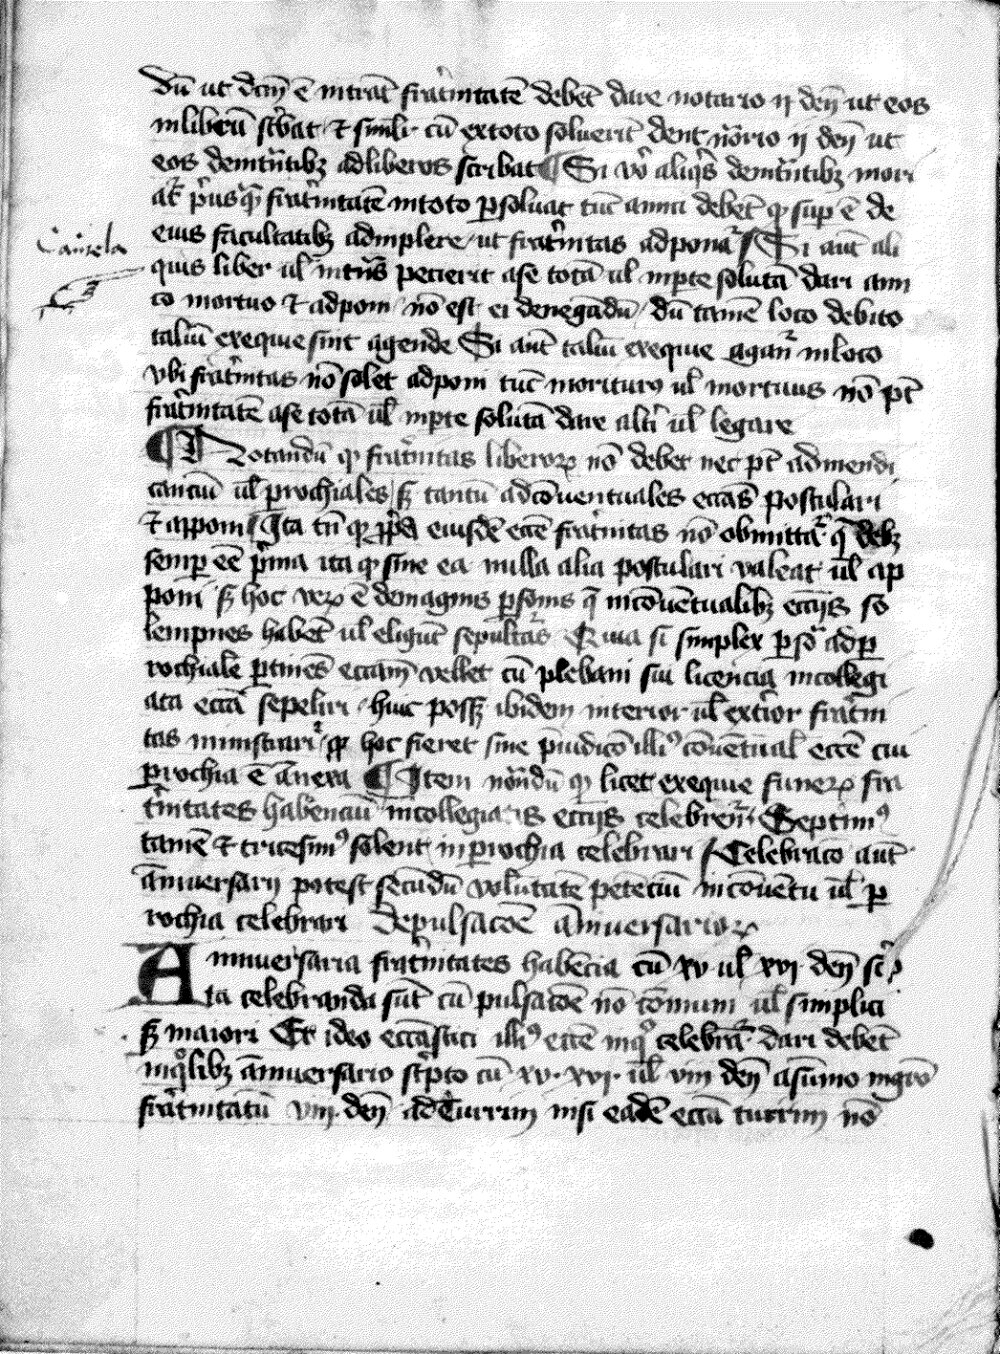 dū ut dc̄m ē intrāt frat̓nitatē debēt dare notario ij den̄ ut eos
inlibrū sc̓bat ⁊ simli cū extoto soluerīt dent nōrio ij den̄ ut
eos demt̄ntibꝫ adliberos scribat ¶ Si vo̓ aliq̓s demt̄ntibꝫ mori
at᷑ p̓usqᷓ frat̓nitatē intoto ꝑsoluat tūc anīa debet ꝙ suꝑ ē de
eius facultatibꝫ adinplere / ut frat̓nitas adponat᷑ / Si aut̄ ali
Cautela
quis liber ul̄ int̄ns petierit ase totā ul̄ inꝑte solutā dari ami
co mortuo ⁊ adponi / nō est ei denegādū / dū tamē loco debito
taliū exequie sint agende Si aut̄ taliū exequie agant᷑ inloco
vbi frat̓nitas nō solet adponi tūc moriturꝰ ul̄ mortuus nō pt̄
frat̓nitatē ase totā ul̄ inꝑte solutā dare alt̓i ul̄ legare
¶ Notandū ꝙ frat̓nitas liberoꝝ nō debet nec pt̄ admendi
canciū ul̄ ꝑrochiales sꝫ tantū adcōuentuales eccās postulari
⁊ apponi / Ita tn̄ ꝙ p̓pa eiusdē eccē frat̓nitas nō obmittat᷑ q̄ debꝫ
semꝑ eē p̓ma ita ꝙ sine ea nulla alia postulari valeat ul̄ ap
poni sꝫ hoc veꝝ ē demagnis ꝑsonis q̄ incōuētualibꝫ ecciis so
lempnes habēt ul̄ eligūt sepultᷓas Quia si simplex ꝑsōa adꝑ
rochialē ꝑtinēs eccam̄ vellet cū plebani sui licencia incollegi
ata eccā sepeliri / huic possꝫ ibidem interior ul̄ ext̓ior frat̓ni
tas ministrari᷑ / ꝙ hoc fieret sine p̄iudicō illiꝰ cōuētual̄ eccē cui
ꝑrochia ē ānexa ¶ Item nōndū ꝙ licet exequie funeꝝ fra
t̓nitates habenciū incollegiatis ecciis celebrent᷑ / Septimꝰ
tamē ⁊ tricesimꝰ solent inꝑrochia celebrari / Celebraco aut̄
ānuersarij potest secūdū volūtatē petēciū incōuētu ul̄ ꝑ
rochia celebrari Depulsacōe ānuersarioꝝ
Anniuersaria frat̓nitates habēcia cū xv ul̄ xvj den̄ sc̓p
ta celebranda sūt cū pulsacōe nō cōmuni ul̄ simplici
sꝫ maiori Et ideo eccāstici illiꝰ eccē inqᵒ celebrat᷑ dari debēt
inqᵒlibꝫ ānuersario sc̓pto cū xv · xvj · ul̄ viij den̄ asūmo mḡro
frat̓nitatū viij den̄ adTurrim nisi eadē eccā turrim nō